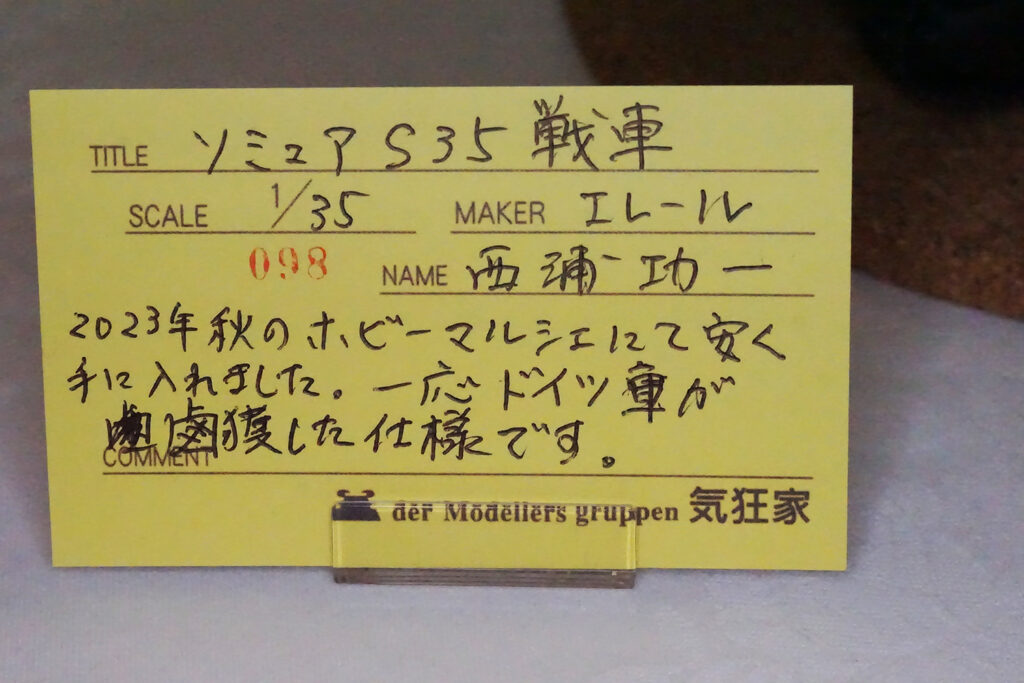 TITLE ソミュア S35 戦車
SCALE 1/35 MAKER エレール
098 NAME 西浦功一
2023年秋のホビーマルシェにて安く
手に入れました。一応ドイツ軍が
鹵獲した仕様です。
COMMENT
der Modellers gruppen 気狂家